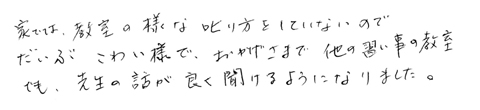 家では、教室の様な叱り方をしていないので
だいぶ こわい様で、おかげさまで 他の習い事の教室
でも、先生の話が良く聞けるようになりました。